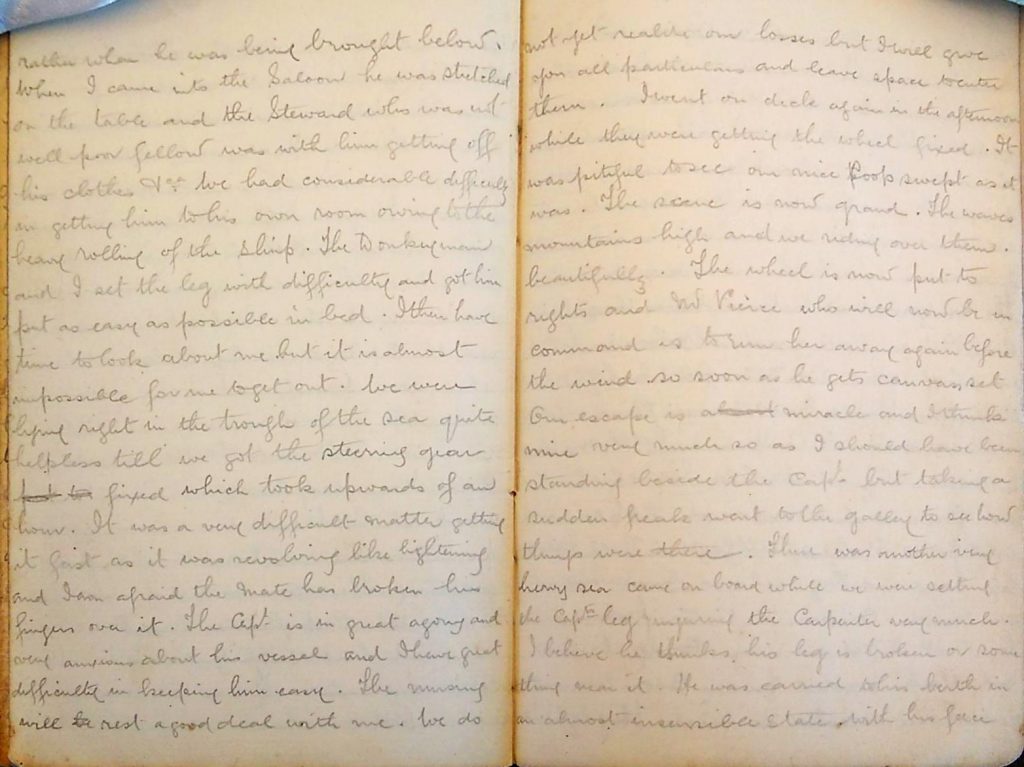 rather when he was being brought below.
When I came into the Saloon he was stretched
on the table and the Steward who was not
well poor fellow was with him getting off
his clothes &ca. We had considerable difficulty
in getting him to his own room owing to the
heavy rolling of the ship. The Donkeyman
and I set the leg with difficulty and got him
put as easy as possible in bed. I then have
time to look about me but it is almost
impossible for me to get out. We were
lying right in the trough of the sea quite
helpless till we got the steering gear
put to fixed which took upwards of an
hour. It was a very difficult matter getting
it fast as it was revolving like lightening
and I am afraid the Mate has broken his
fingers over it. The Capt. is in great agony and
very anxious about his vessel and I have great
difficulty in keeping him easy. The nursing
will be rest a good deal with me. We do
not yet realise our losses but I will give
you all particulars and leave space to enter
them. I went on deck again in the afternoon
while they were getting the wheel fixed. It
was pitiful to see our nice Poop swept as it
was. The scene is now grand. The waves
mountains high and we riding over them
beautifully. The wheel is now put to
rights and Mr Pierce who will now be in
command is to run her away again before
the wind so soon as he gets canvas set
Our escape is about miracle and I think
mine very much so as I should have been
standing beside the Capt. but taking a
sudden freak went to the galley to see how
things were there. There was another very
heavy sea came on board while we were setting
the Captn leg injuring the Carpenter very much.
I believe he thinks his leg is broken or some
thing near it. He was carried to his berth in
an almost insensible state, with his face